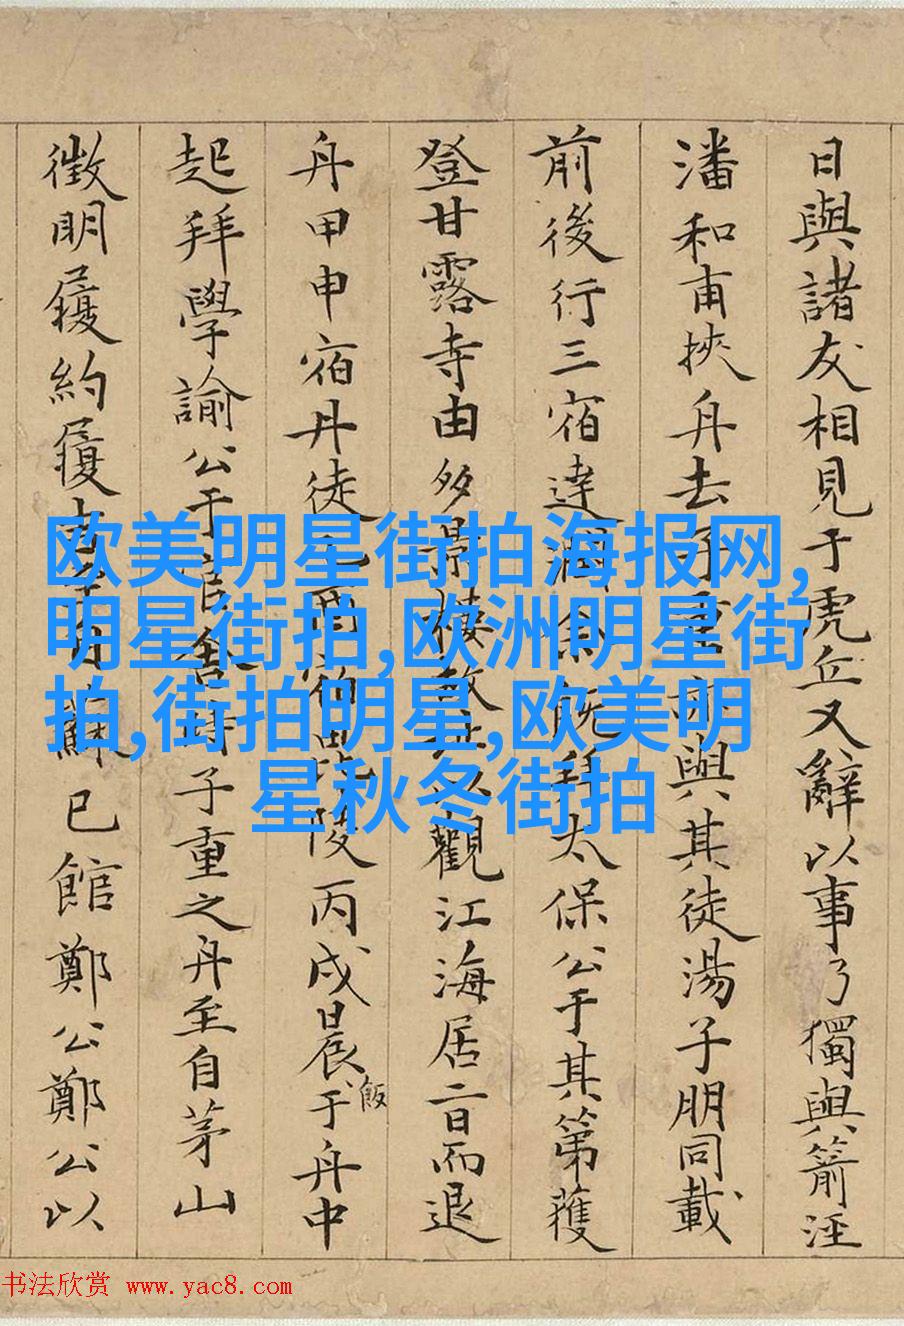 日與諸友相見于虎丘又辭以事乃獨與箭涇
潘和甫挾舟去子重亦與其徒湯子朋同載
前後行三宿達潤余既拜太保公于其第獲
登甘露寺由多景樓以觀江海居二日而退
舟甲申宿丹徒乙酉宿毗陵丙戌晨飯于舟中
起拜學諭公于官舍時子重之舟至自茅山
徵明履約履吉蘇已館鄭公鄭公以
欧美明星街拍海报网,
明星街拍,欧洲明星街
拍,街拍明星,欧美明
星秋冬街拍
书法欣赏 www.yac8.com